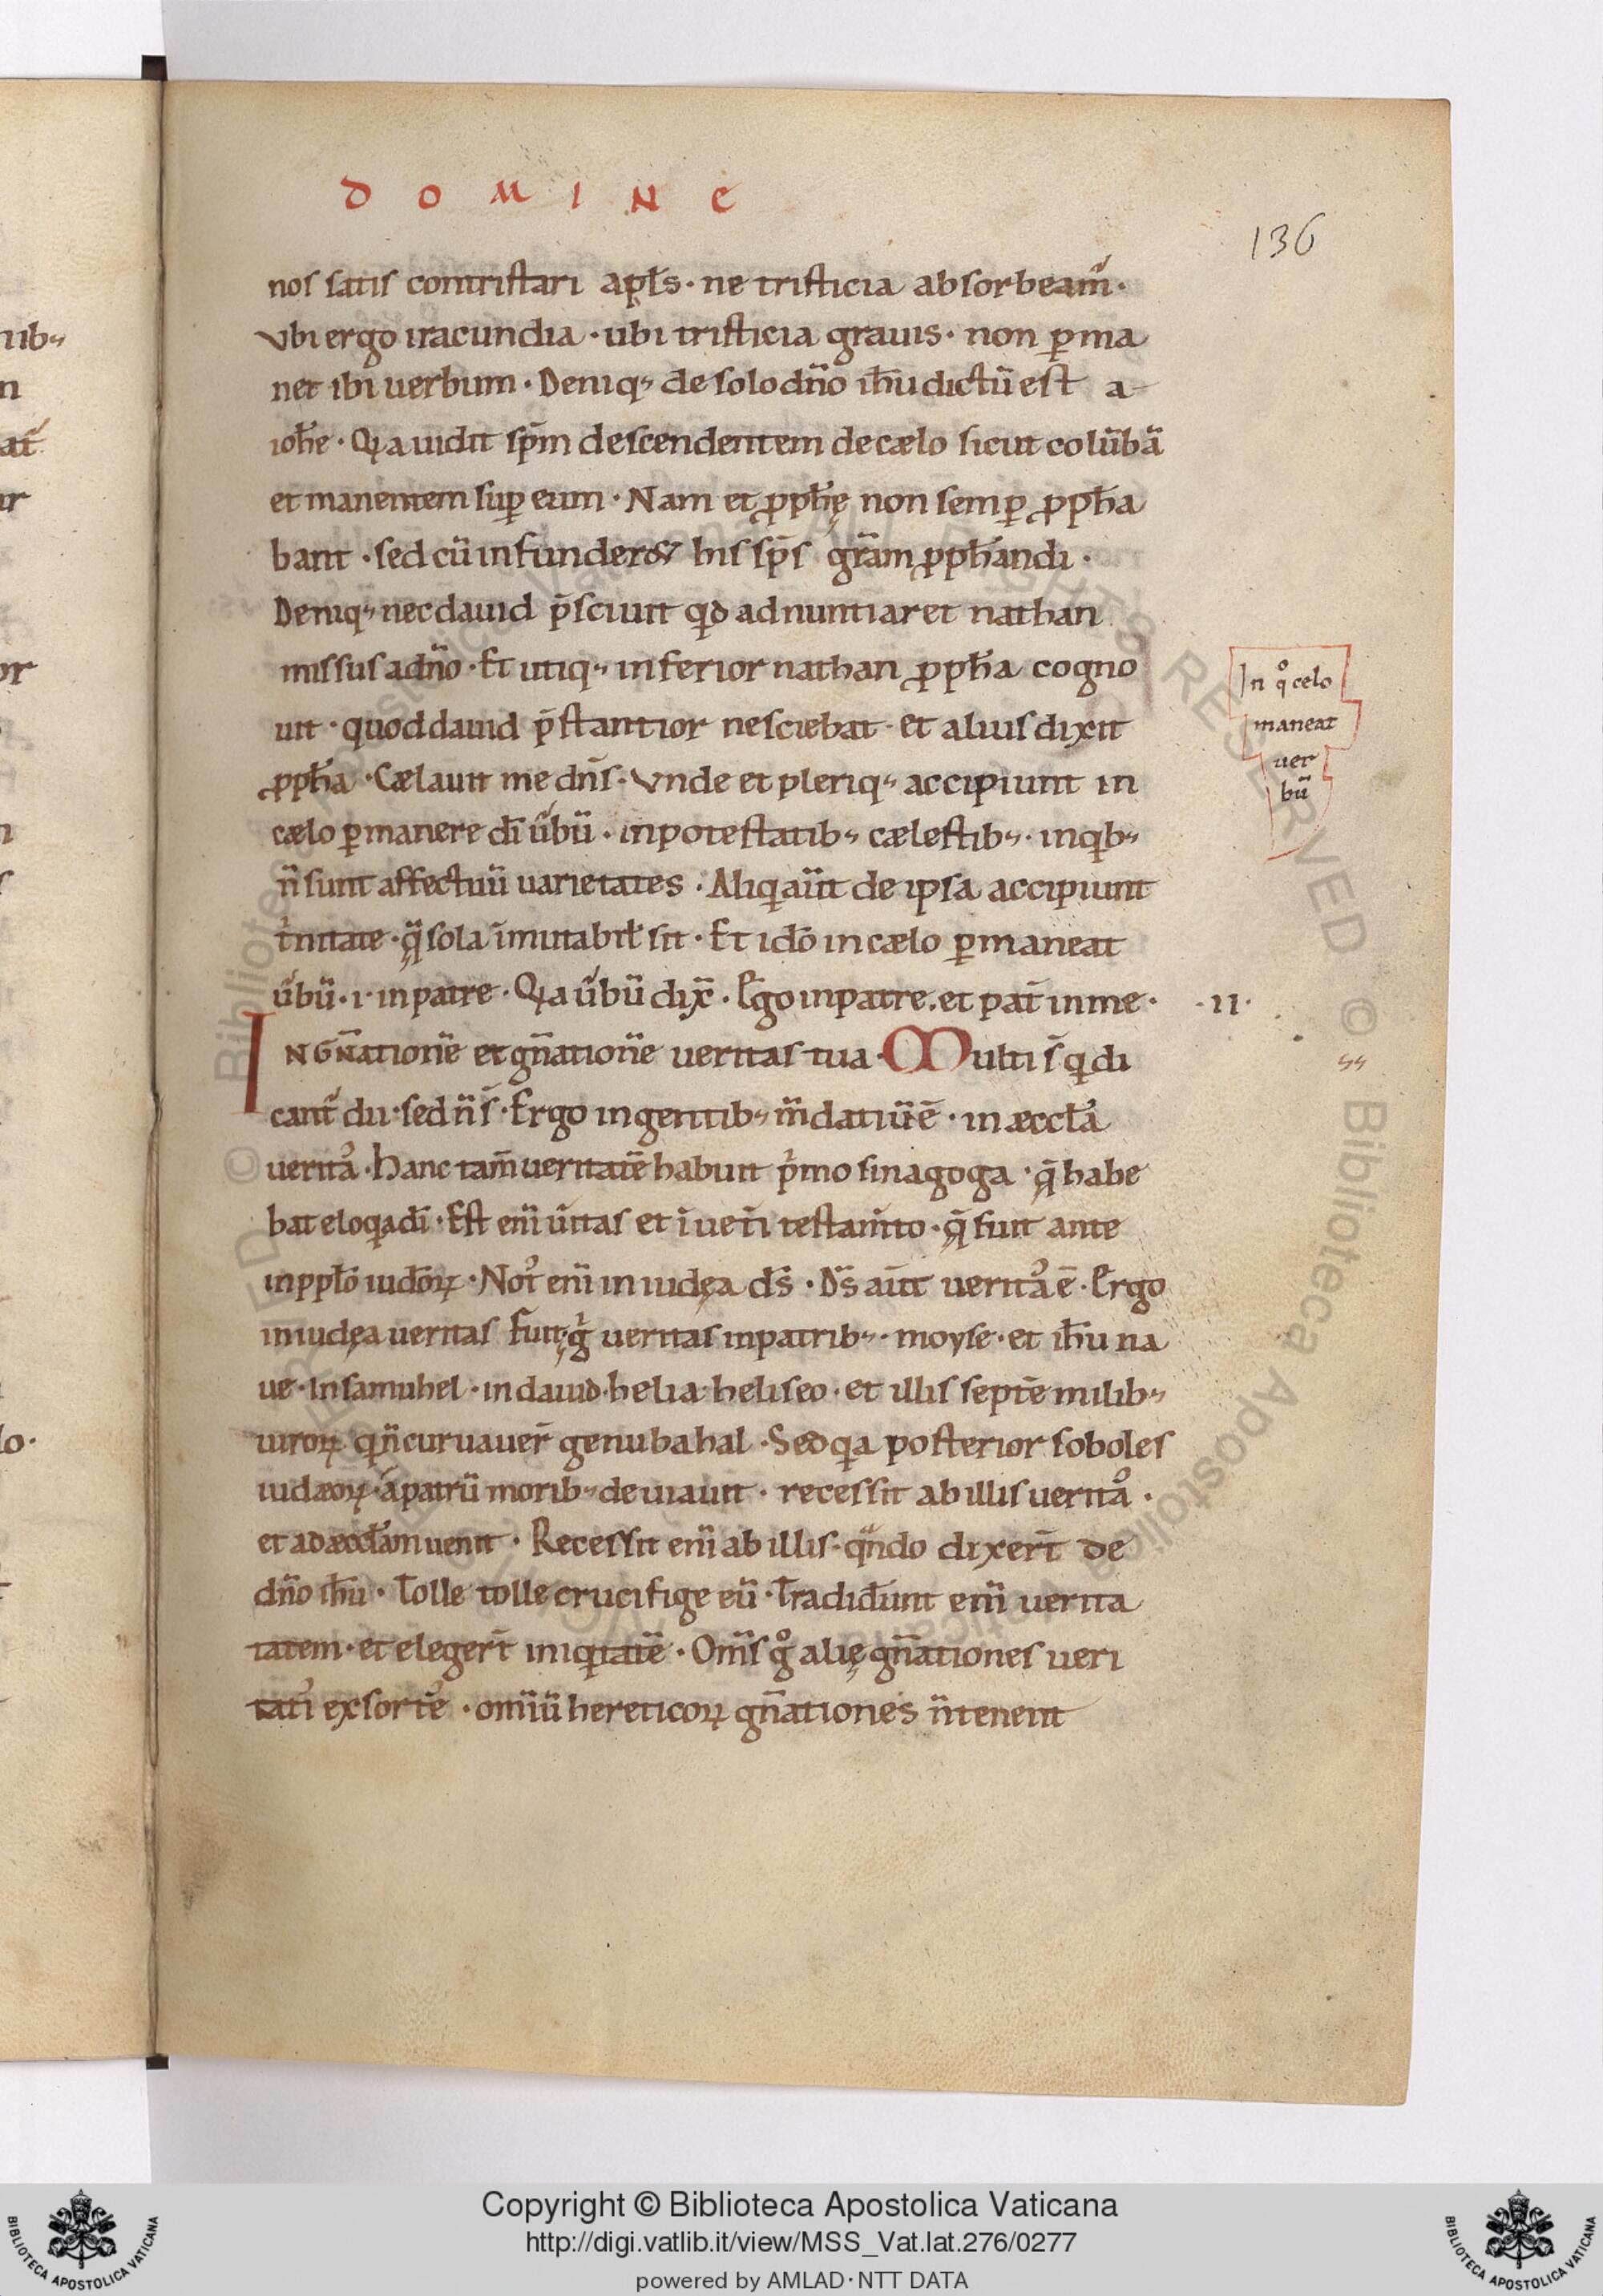 D O M I N E
136
nos satis contristari apl̄s · ne tristicia absorbeam̄ ·
Vbi ergo iracundia · ubi tristicia grauis · non ꝑma
net ibi uerbum · Deniq; de solo dn̄o ih̄u dictū est a
ioh̄e · Qia uidit sp̄m descendentem de cælo sicut colūbā
et manentem suꝑ eum · Nam et ꝓph̄ę non semꝑ ꝓph̄a
bant · sed cū infunder& his sp̄s gr̄am ꝓph̄andi ·
Deniq; nec dauid p̄sciuit qd adnuntiaret nathan
missus a dn̄o · Et utiq; inferior nathan ꝓph̄a cogno
uit · quod dauid p̄stantior nesciebat · et alius dixit
ꝓph̄a · Cælauit me dn̄s · Vnde et pleriq; accipiunt in
cælo ꝑmanere dī ūbū · in potestatib; cælestib; · in qib;
n̄ sunt affectuū uarietates · Aliqi aūt de ipsa accipiunt
tͥnitate · q̄ sola īmutabil̄ sit · Et ido̅ in cælo ꝑmaneat
ūbū · i · in patre · Qia ūbū dix̄ · Ego in patre . et pat̄ in me ·
· II ·
IN GN̄atione̅ et gn̄atione̅ ueritas tua · Multi s̄ qi di
cant̄ dii · sed n̄ s̄ · Ergo in gentib; m̄datiū ē · in æccl̄a
uerita᾽ · Hanc tam̄ ueritatē habuit pͥmo sinagoga · q̄ habe
bat eloqia dī · Est eni̅ ūitas et ī uet̄i testam̄to · q̄ fuit ante
in ppl̄o iudo̅ꝝ · Not᾽ eni̅ in iudęa ds̄ · Ds̄ aūt uerita᾽ ē · Ergo
in iudęa ueritas fuit · gͥ ueritas in patrib; · moyse · et ih̄u na
ue · In samuhel · in dauid · helia · heliseo · et illis septē milib;
uiroꝝ qi n̄ curuauer̄ genu bahal · Sed qia posterior soboles
iudæoꝝ · a patrū morib; deuiauit · recessit ab illis uerita᾽ ·
et ad æccl̄am uenit · Recessit eni̅ ab illis · qn̄do dixer̄t de
dn̄o ih̄u · Tolle tolle crucifige eū · Tradid̄unt eni̅ uerita
tatem · et eleger̄t iniqitatē · Om̄s gͦ alię gn̄ationes ueri
tati᾽ exsorte᾽ · omiū hereticoꝝ gn̄ationes n̄ tenent
In qͦ celo
maneat
uer
bū
Copyright © Biblioteca Apostolica Vaticana
http://digi.vatlib.it/view/MSS_Vat.lat.276/0277
powered by AMLAD·NTT DATA
BIBLIOTECA APOSTOLICA VATICANA
BIBLIOTECA APOSTOLICA VATICANA